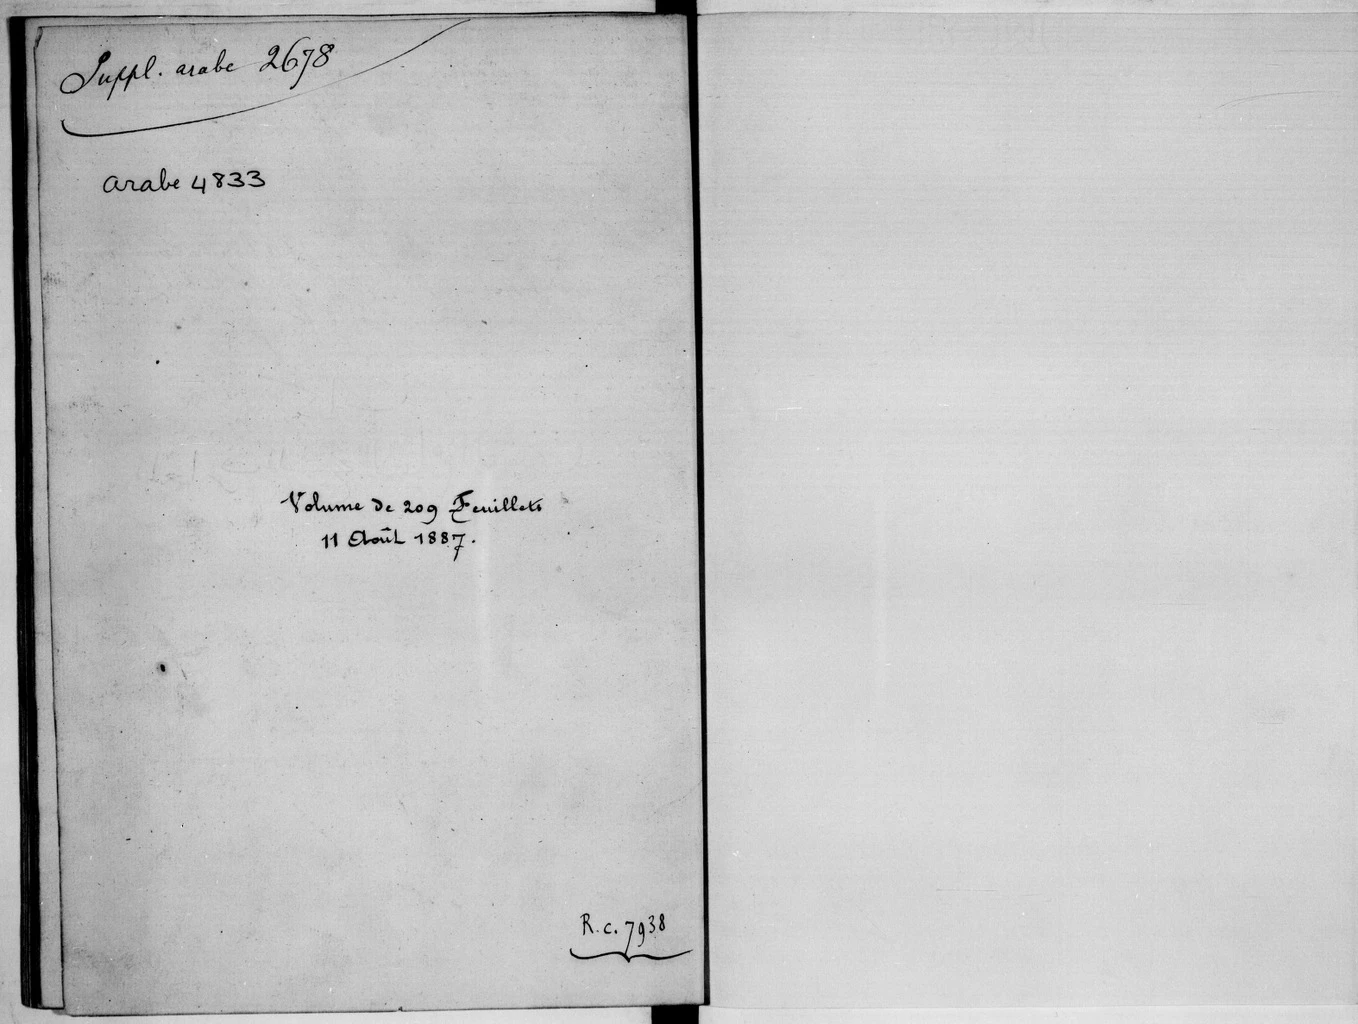 Suppl. arabe 2678
arabe 4833
Volume de 209 Feuillets
11 Août 1887.
R.c. 7938